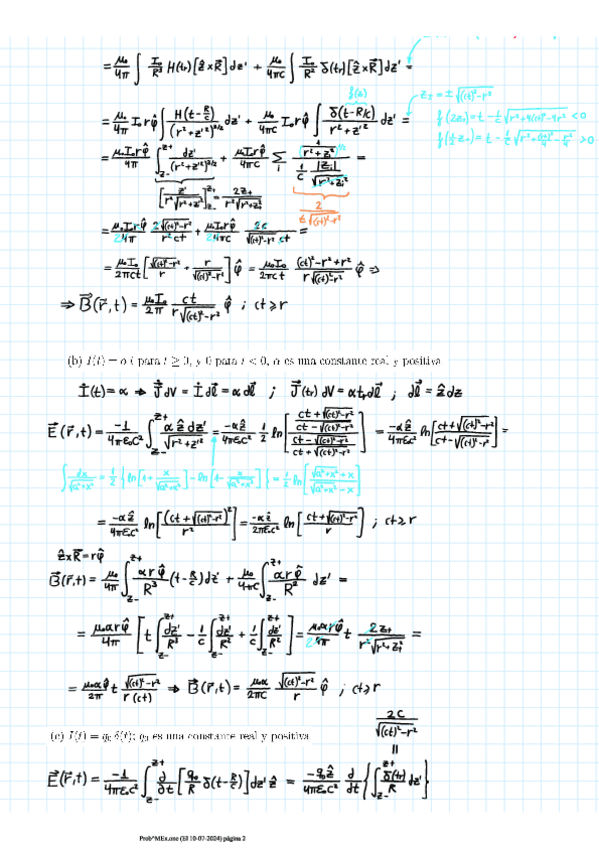 = μ₀/4π ∫ I₀/R³ H(tr)[ẑ×R⃗]dz' + μ₀/4πc ∫ I₀/R² δ(tr)[ẑ×R⃗]dz' =
f(z)
= μ₀/4π I₀rφ̂ ∫ H(t-R/c)/(r²+z'²)^3/2 dz' + μ₀/4πc I₀rφ̂ ∫ δ(t-R/c)/(r²+z'²) dz' =
z± = ±√((ct)²-r²)
= μ₀I₀rφ̂/4π ∫ z- z+ dz'/(r²+z'²)^3/2 + μ₀I₀rφ̂/4πc Σi
[z'/(r²√(r²+z'²))] z- z+ = 2z+/(r²√(r²+z+²))
= μ₀I₀rφ̂/4π 2√((ct)²-r²)/(r²ct) + μ₀I₀rφ̂/4πc 2c/(√((ct)²-r²) ct) =
= μ₀I₀/2πct [√((ct)²-r²)/r + r/√((ct)²-r²)] φ̂ = μ₀I₀/2πct ((ct)²-r²+r²)/(r√((ct)²-r²)) φ̂ ⇒
⇒ B⃗(r⃗,t) = μ₀I₀/2π ct/(r√((ct)²-r²)) φ̂ ; ct≥r
(b) I(t) = α t para t ≥ 0, y 0 para t < 0, α es una constante real y positiva
İ(t) = α ⇒ J⃗̇dV = İdl⃗ = αdl⃗ ; J⃗(tr)dV = αtrdl⃗ ; dl⃗ = ẑdz
E⃗(r⃗,t) = -1/4πε₀c² ∫ z- z+ αẑdz'/√(r²+z'²) = -αẑ/4πε₀c² 1/2 ln[((ct+√((ct)²-r²))/(ct-√((ct)²-r²)))/((ct-√((ct)²-r²))/(ct+√((ct)²-r²)))] = -αẑ/4πε₀c² ln[(ct+√((ct)²-r²))/(ct-√((ct)²-r²))] =
∫ dx/√(a²+x²) = 1/2 {ln[1+x/√(a²+x²)] - ln[1-x/√(a²+x²)]} = 1/2 ln[(√(a²+x²)+x)/(√(a²+x²)-x)]
= -αẑ/4πε₀c² ln[(ct+√((ct)²-r²))²/r²] = -αẑ/2πε₀c² ln[(ct+√((ct)²-r²))/r] ; ct≥r
ẑ×R⃗ = rφ̂
B⃗(r⃗,t) = μ₀/4π ∫ z- z+ αrφ̂/R³ (t-R/c)dz' + μ₀/4πc ∫ z- z+ αrφ̂/R² dz' =
= μ₀αrφ̂/4π [t ∫ z- z+ dz'/R³ - 1/c ∫ z- z+ dz'/R² + 1/c ∫ z- z+ dz'/R²] = μ₀αrφ̂/4π t 2z+/(r²√(r²+z+²)) =
= μ₀αφ̂/2π t √((ct)²-r²)/(r(ct)) ⇒ B⃗(r⃗,t) = μ₀α/2πc √((ct)²-r²)/r φ̂ ; ct≥r
(c) I(t) = q₀ δ(t); q₀ es una constante real y positiva
2c/√((ct)²-r²)
=
E⃗(r⃗,t) = -1/4πε₀c² ∫ z- z+ ∂/∂t [q₀/R δ(t-R/c)]dz'ẑ = -q₀ẑ/4πε₀c² d/dt {∫ z- z+ δ(tr)/R dz'}
Prob^MEx.one (El 10-07-2024) página 2